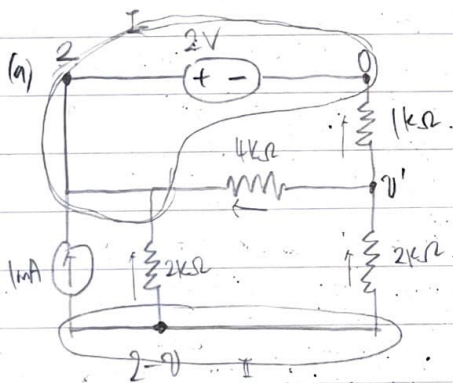 I
2 2V 0
(a)
+ -
1kΩ
4kΩ
v'
1mA
2kΩ
2kΩ
2-v II